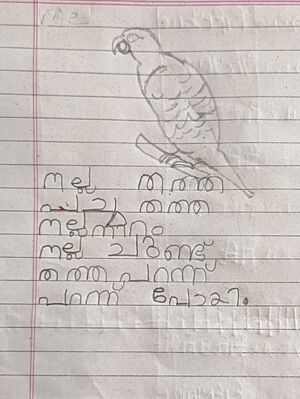 നല്ല തത്ത
പച്ച തത്ത
നല്ലനിറം
നല്ല ചുണ്ട്
തത്ത പറന്ന്
പറന്ന് പോയി.